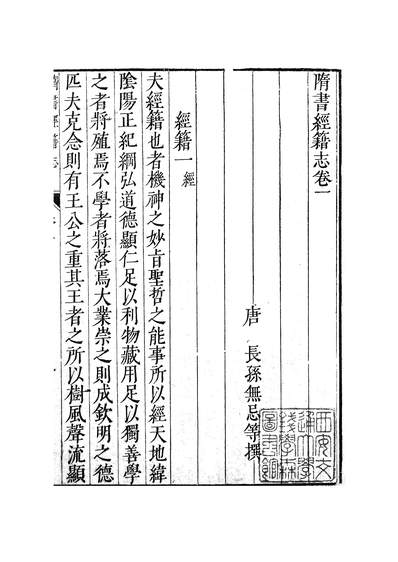 隋書經籍志卷一
唐 長孫無忌等撰
經籍一 經
夫經籍也者機神之妙旨聖哲之能事所以經天地緯
陰陽正紀綱弘道德顯仁足以利物藏用足以獨善學
之者將殖焉不學者將落焉大業崇之則成欽明之德
匹夫克念則有王公之重其王者之所以樹風聲流顯
隋書經籍志
西安交
通大學
錢學森
圖書館